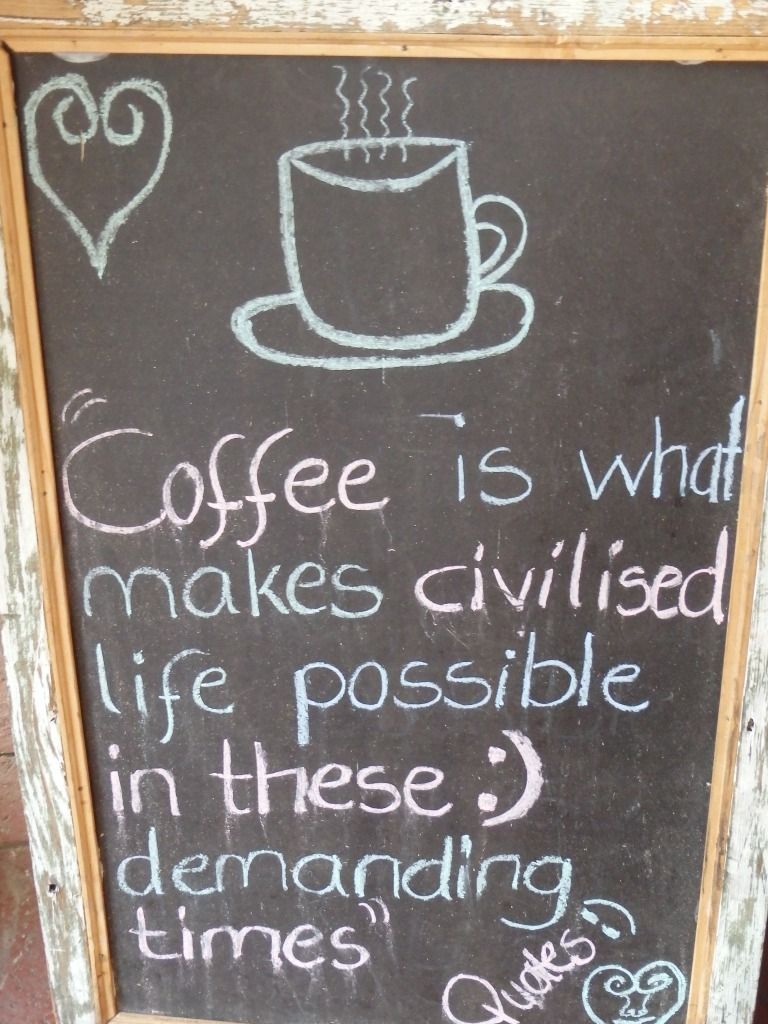 "Coffee is what
makes civilised
life possible
in these :)
demanding
times"
Quotes :)